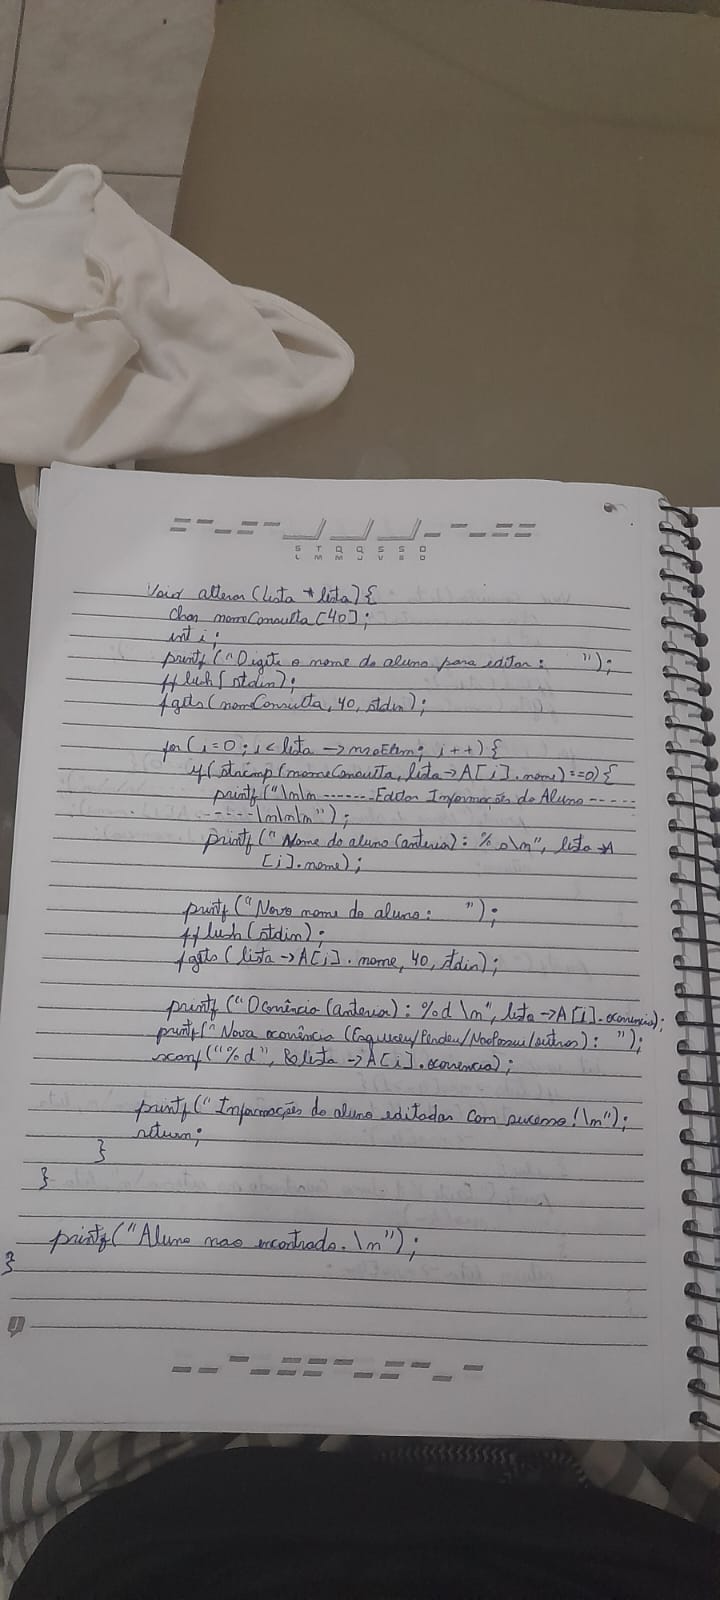 S T Q Q S S D
L M M J V S D
Void alterar (Lista *lista) {
char nomeConsulta [40];
int i;
printf ("Digite o nome do aluno para editar : ");
fflush (stdin);
fgets (nomeConsulta, 40, stdin);
for (i=0; i< lista -> nroElem; i++) {
if (strcmp (nomeConsulta, lista->A[i].nome) ==0) {
printf ("\n\n -------Editar Informações do Aluno -----
------\n\n\n");
printf (" Nome do aluno (anterior) : %s\n", lista ->A
[i].nome);
printf ("Novo nome do aluno : ");
fflush (stdin);
fgets (lista ->A[i]. nome, 40, stdin);
printf (" Ocorrência (anterior) : %d \n", lista ->A[i].ocorrencia);
printf (" Nova ocorrência (Esqueceu/Perdeu/NaoPossui/outros) : ");
scanf ("%d", &lista ->A[i].ocorrencia);
printf (" Informações do aluno editadas com sucesso! \n");
return;
}
}
printf ("Aluno nao encontrado. \n");
}